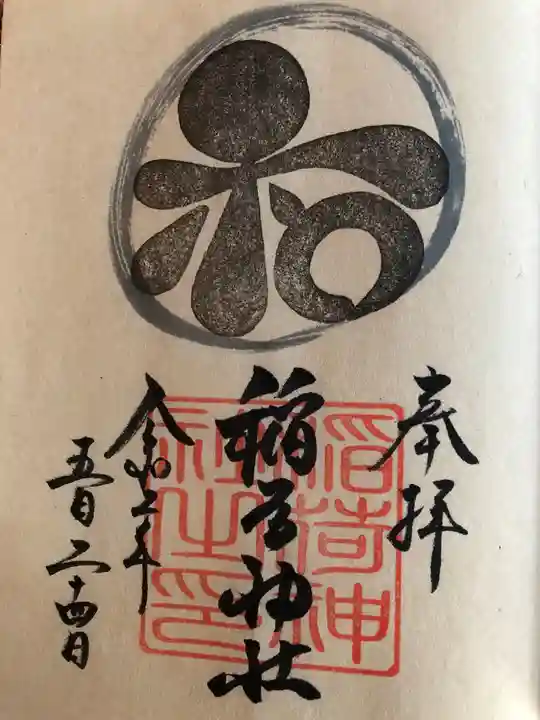 奉拝
稲荷神社
稲荷神社之印
令和二年
五月二十四日